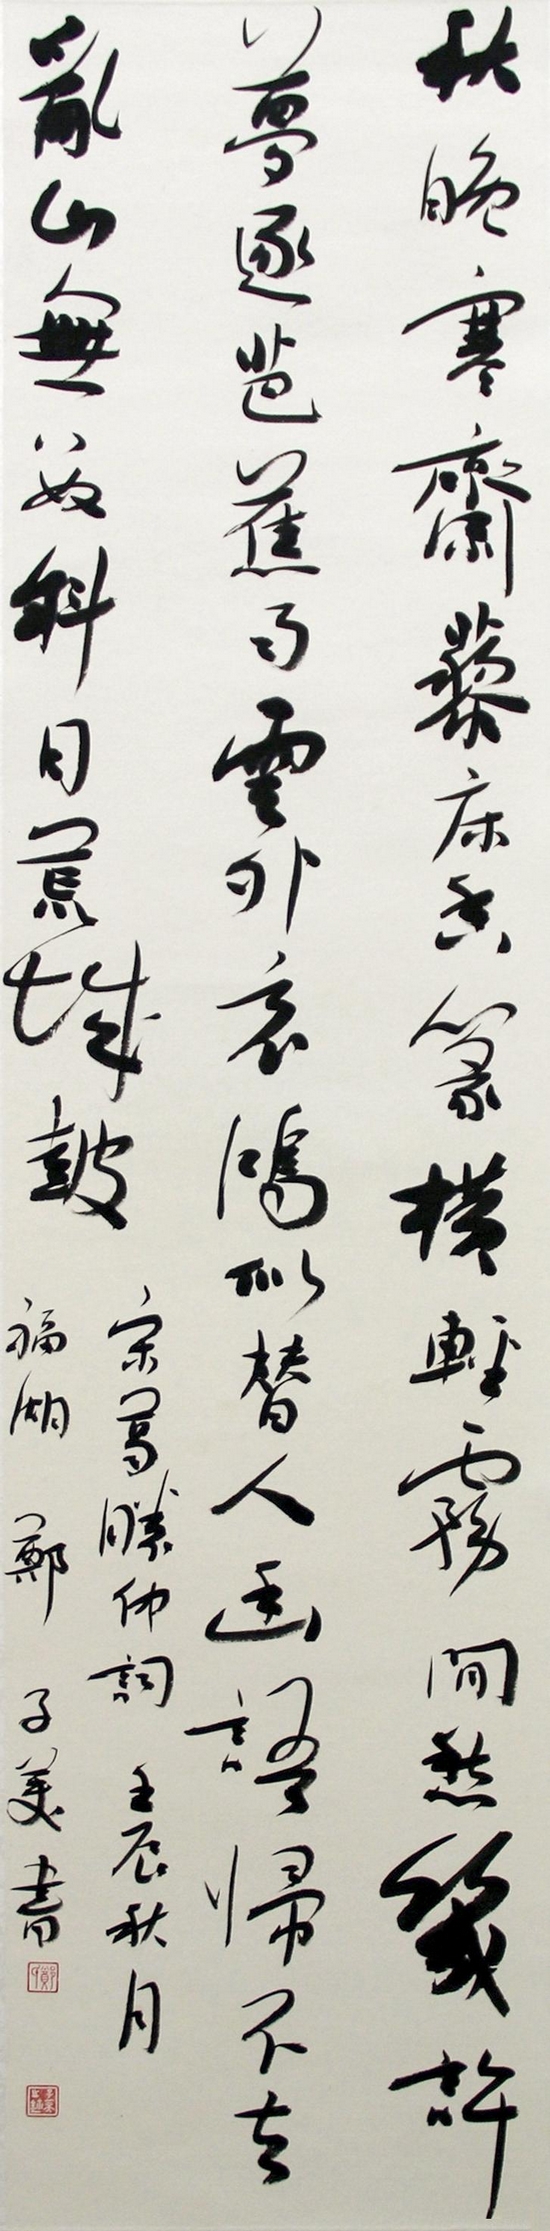 秋晚寒齋藜床香篆橫輕霧閒愁幾許
夢逐芭蕉雨雲外哀鴻似替人幽語歸不去
亂山無數斜日荒城鼓
宋葛勝仲詞 壬辰秋月
福湖 鄭子美書